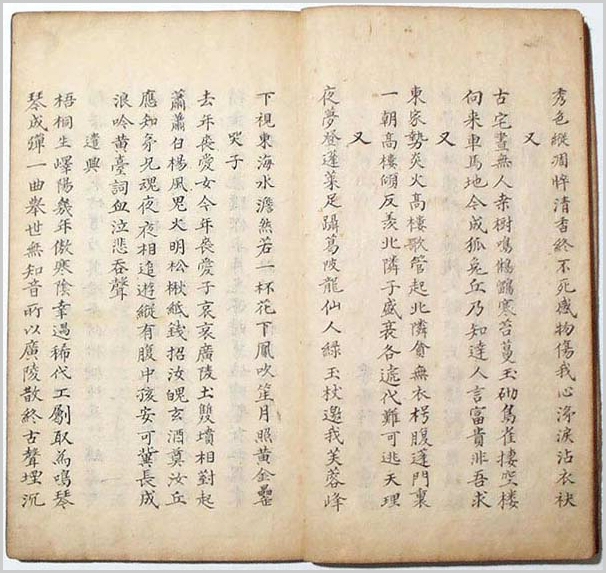 秀色縱凋悴清香終不死感物傷我心涕淚沾衣袂
又
古宅晝無人桑樹鳴鵂鶹寒苔蔓玉砌鳥雀棲空樓
向來車馬地今成狐兔丘乃知達人言富貴非吾求
又
東家勢炎火高樓歌管起北隣貧無衣枵腹蓬門裏
一朝高樓傾反羨北隣子盛衰各遞代難可逃天理
又
夜夢登蓬萊足躡葛陂龍仙人綠玉杖邀我芙蓉峰
下視東海水澹然若一杯花下鳳吹笙月照黃金罍
哭子
去年喪愛女今年喪愛子哀哀廣陵土雙墳相對起
蕭蕭白楊風鬼火明松楸紙錢招汝魄玄酒奠汝丘
應知弟兄魂夜夜相追遊縱有腹中孩安可冀長成
浪吟黃臺詞血泣悲吞聲
遣興
梧桐生嶧陽幾年傲寒陰幸遇稀代工劚取為鳴琴
琴成彈一曲舉世無知音所以廣陵散終古聲埋沉